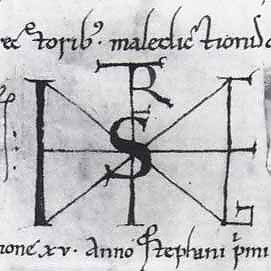 ectorib9 · maledictionis
T
R
I S E
ione xv · Anno Stephani p̄mi